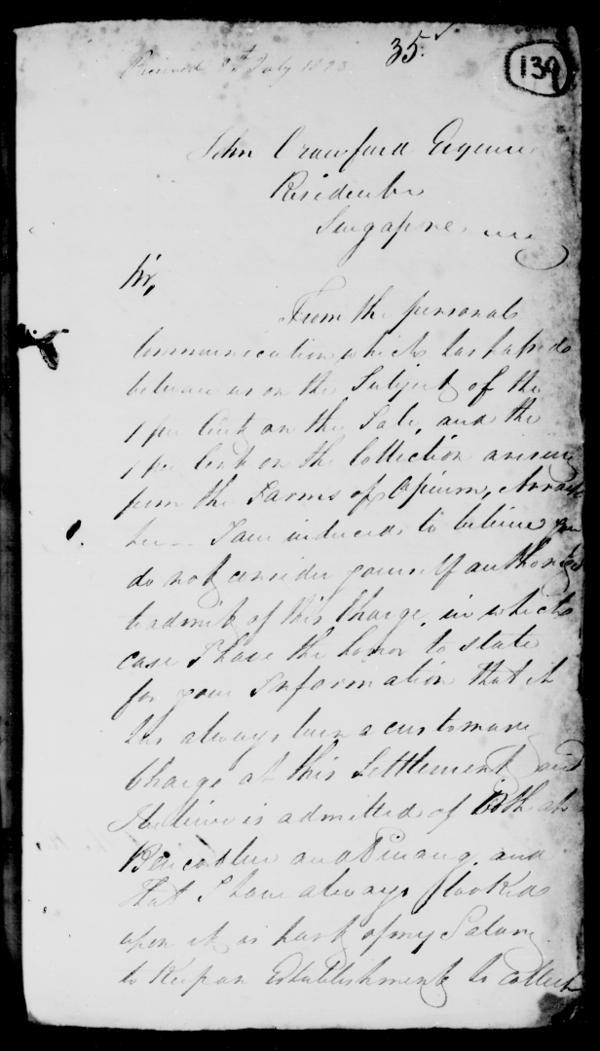 35.
139
Received 8th July 1823
John Crawfurd Esquire
Resident
Singapore
Sir,
From the personal
Communication which has passed
between us on the Subject of the
1 per Cent on the Sale, and the
1 per Cent on the Collection arising
from the Farms of Opium, Arrack
&c — I am induced to believe you
do not consider yourself authorized
to admit of this Charge, in which
case I have the honor to state
for your Information that it
has always been a customary
Charge at this Settlement and
I believe is admitted of Both at
Bencoolen and Pinang, and
that I have always looked
upon it as part of my Salary
to Keep an Establishment to collect